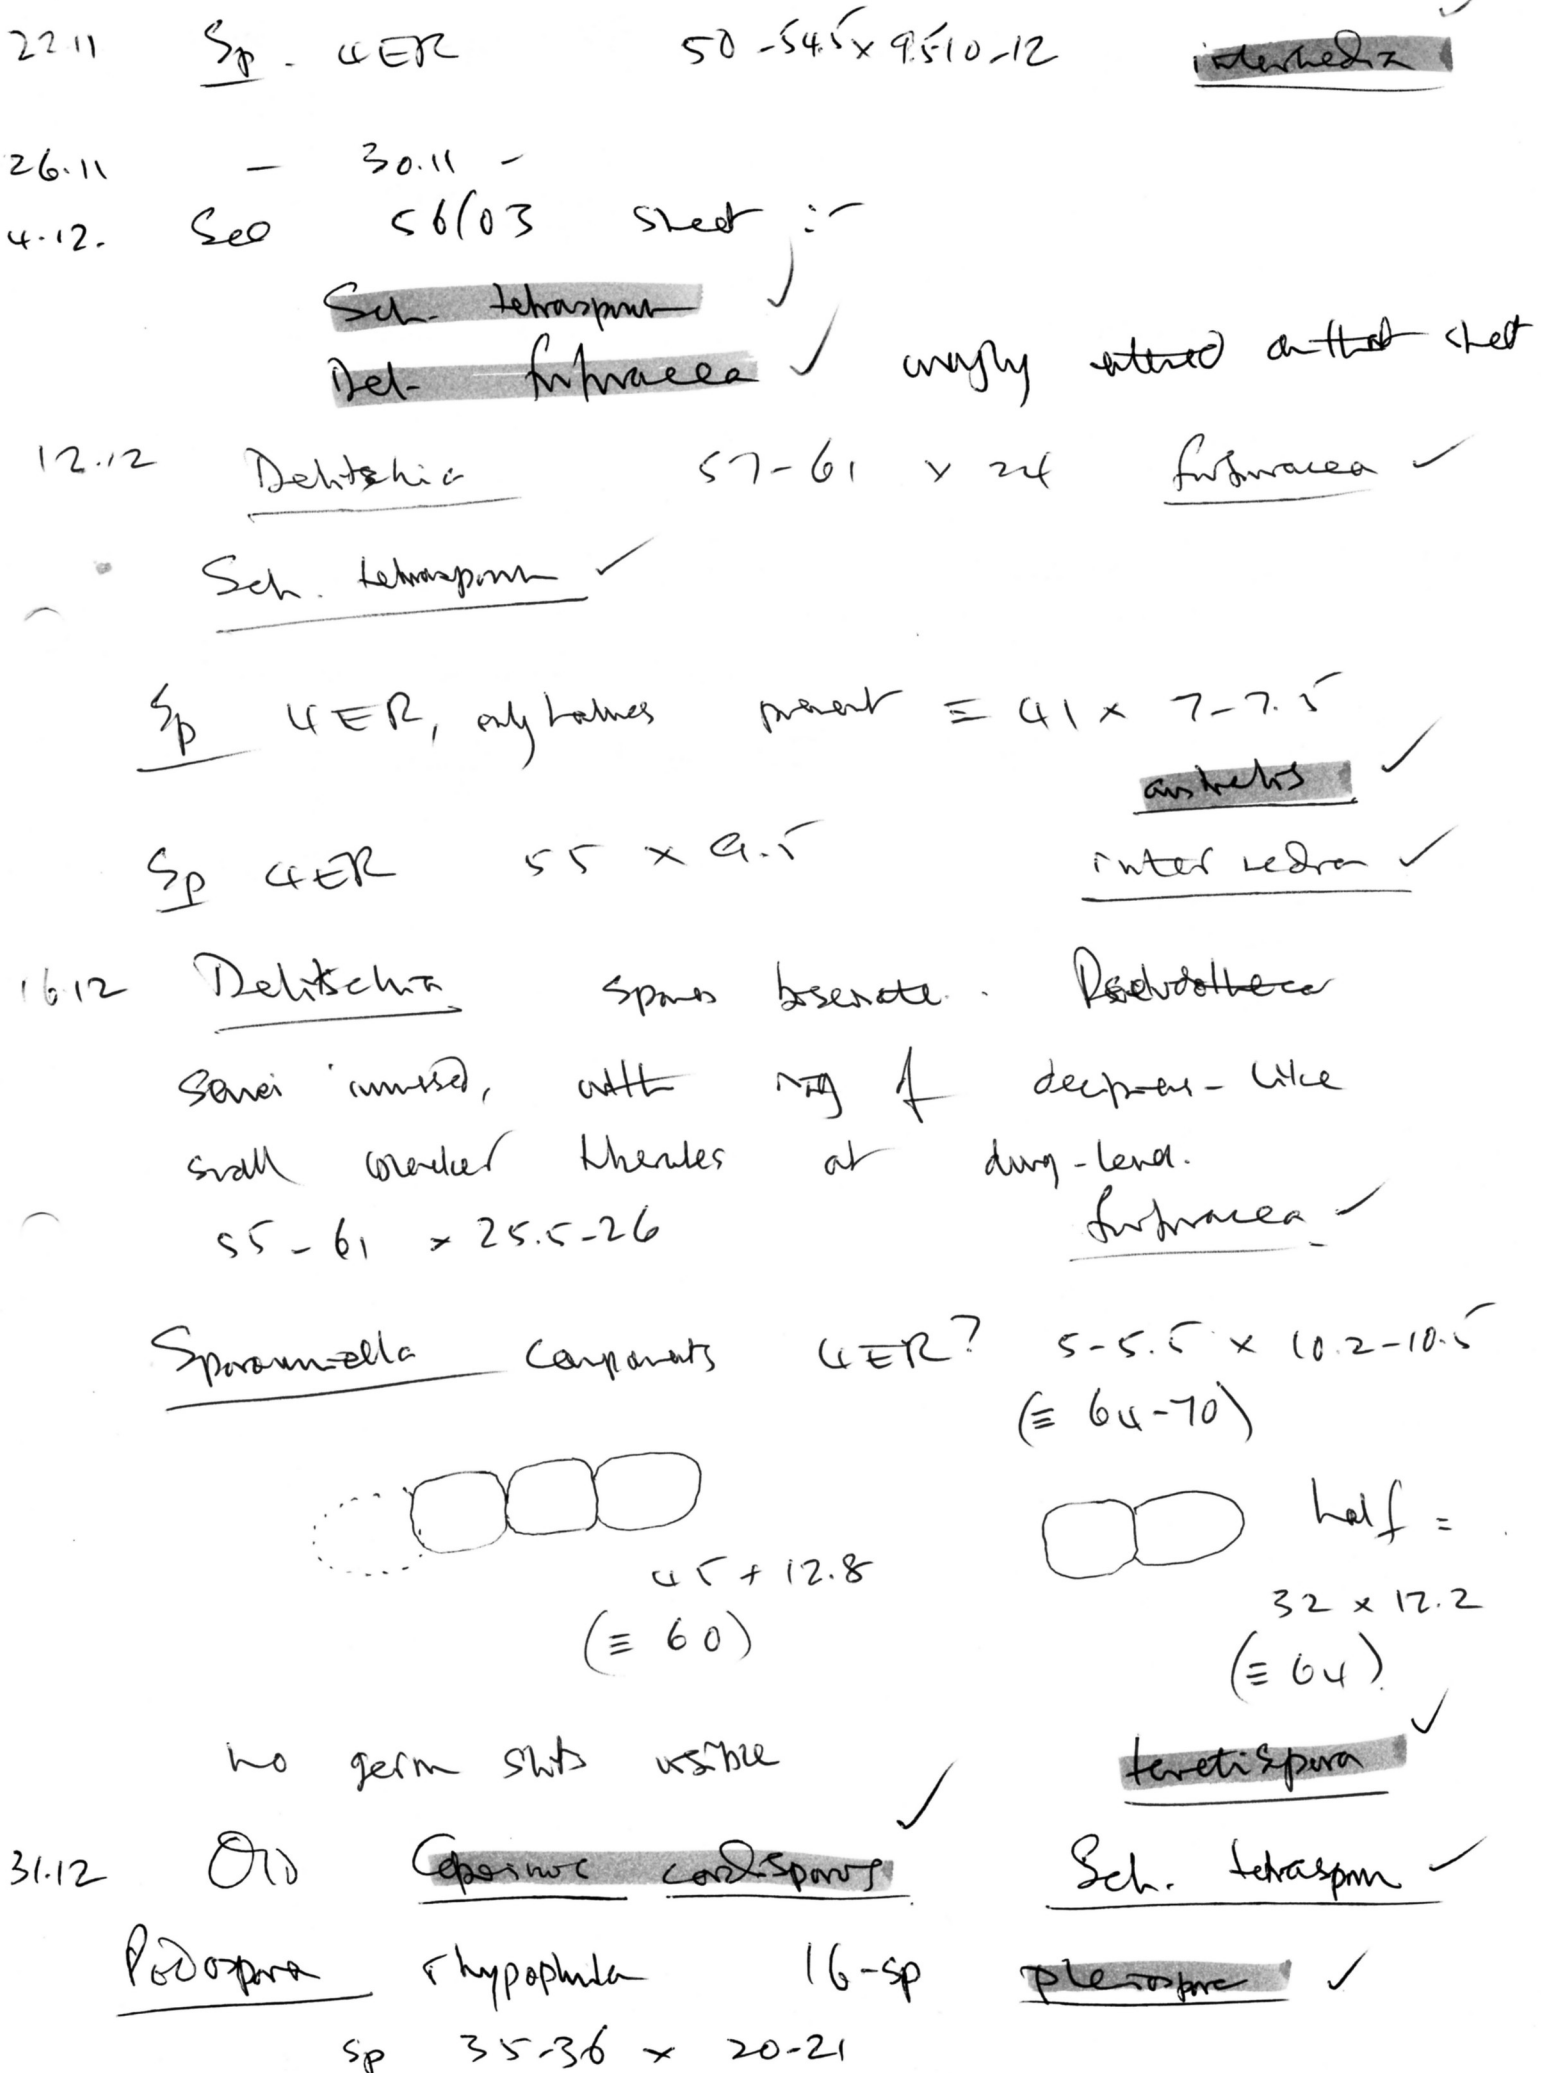 22.11 Sp. 4ER 50-54.5 x 9.5 10-12 intermedia ✓
26.11 - 30.11 -
4.12. See 56/03 sheet :-
Sch. tetraspora ✓
Del. furfuracea ✓ wrongly entered on that sheet
12.12 Delitschia 57-61 x 24 furfuracea ✓
Sch. tetraspora ✓
Sp 4ER, only halves present ≡ 41 x 7-7.5
australis ✓
Sp 4ER 55 x 9.5 intermedia ✓
16.12 Delitschia spores biseriate. Pseudothecia
semi immersed, with ring of decipiens-like
small tubercles at dung-level.
55-61 x 25.5-26 furfuracea ✓
Sporormiella components 4ER? 5-5.5 x 10.2-10.5
(≡ 64-70)
half =
45 + 12.8
32 x 12.2
(≡ 60)
(≡ 64)
no germ slits visible teretispora ✓
31.12 Old Coprinus cordisporus ✓ Sch. tetraspora ✓
Podospora rhypophila 16-sp pleiospora ✓
sp 35-36 x 20-21